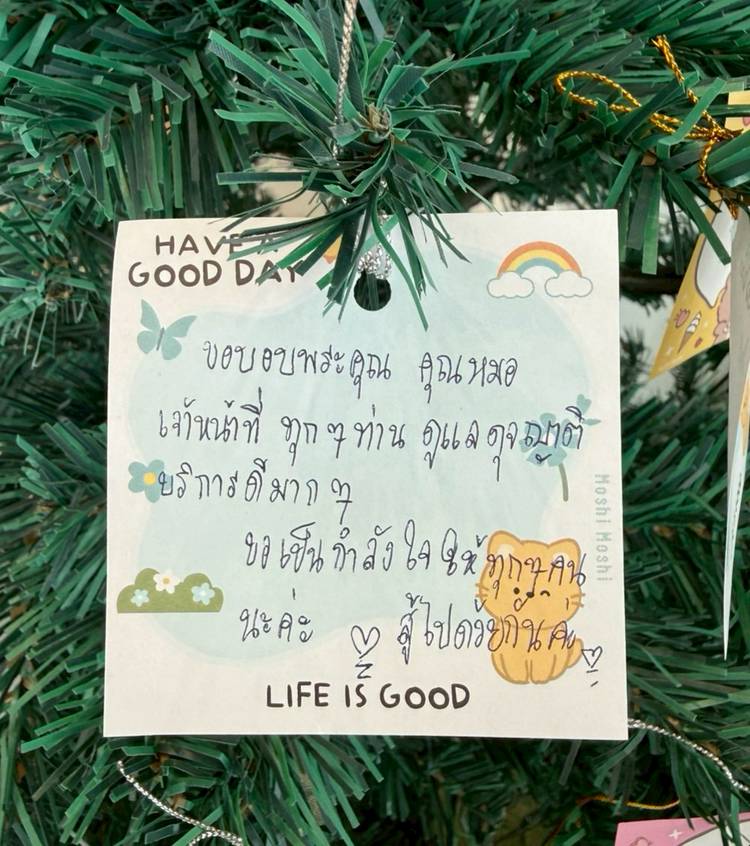 HAVE A
GOOD DAY
ขอบอบพระคุณ คุณหมอ
เจ้าหน้าที่ ทุกๆท่าน ดูแลดุจญาติ
บริการดีมากๆ
ขอเป็นกำลังใจให้ทุกๆคน
นะค่ะ สู้ไปด้วยกันค่ะ
Moshi Moshi
LIFE IS GOOD